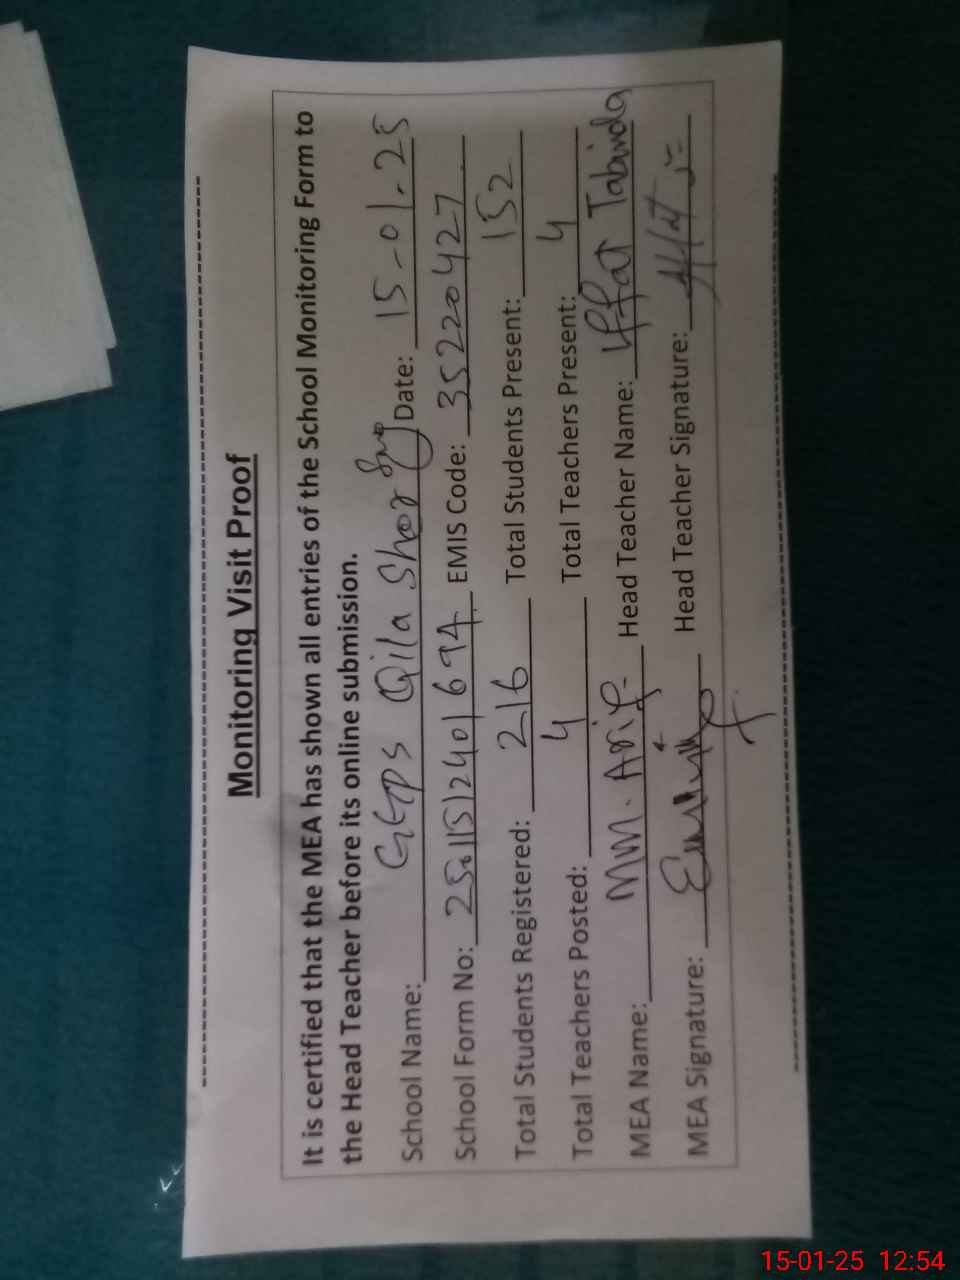 Monitoring Visit Proof
It is certified that the MEA has shown all entries of the School Monitoring Form to
the Head Teacher before its online submission.
School Name: GGPS Qila Sher Date: 15-01-25
School Form No: EMIS Code: 35220427
Total Students Registered: 216 Total Students Present: 152
Total Teachers Posted: 4 Total Teachers Present: 4
MEA Name: Mm. Arif Head Teacher Name: Iffat Tabinda
MEA Signature: Head Teacher Signature:
15-01-25 12:54